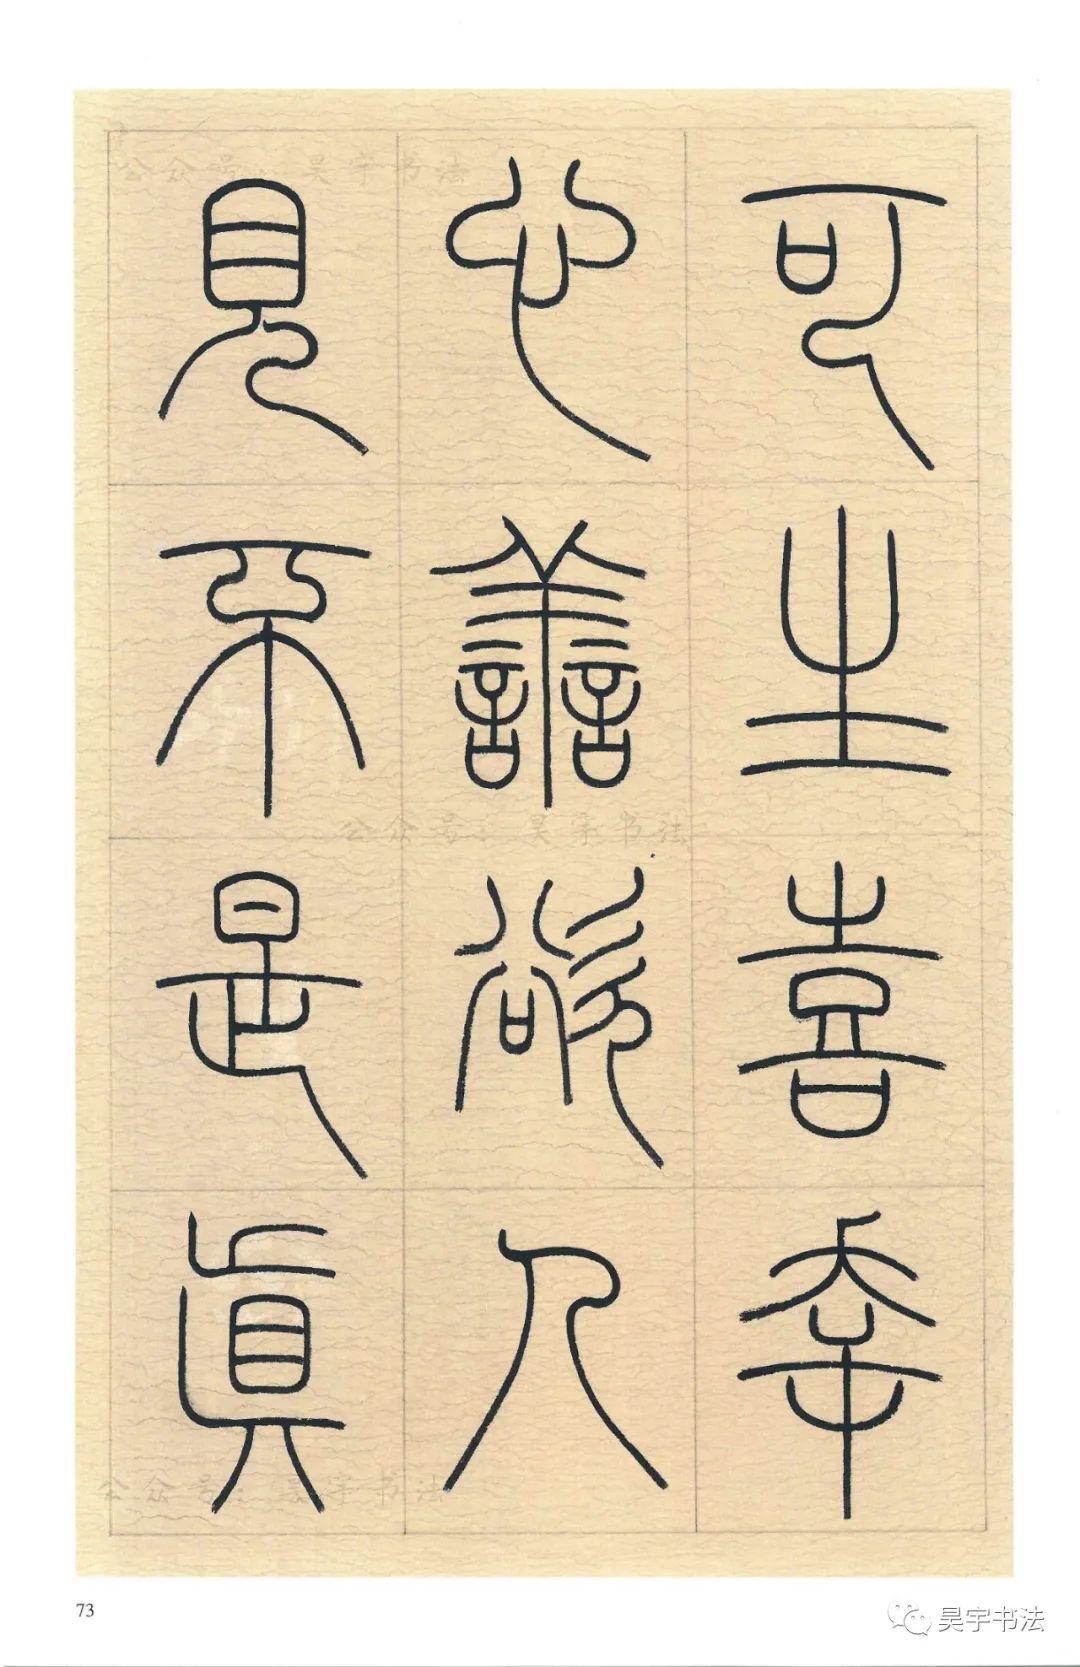 可生喜幸
心善欲人
見不是真
公众号：昊宇书法
公众号：昊宇书法
公众号：昊宇书法
73
昊宇书法